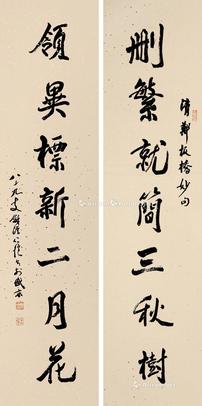 刪繁就簡三秋樹
清鄭板橋妙句
領異標新二月花